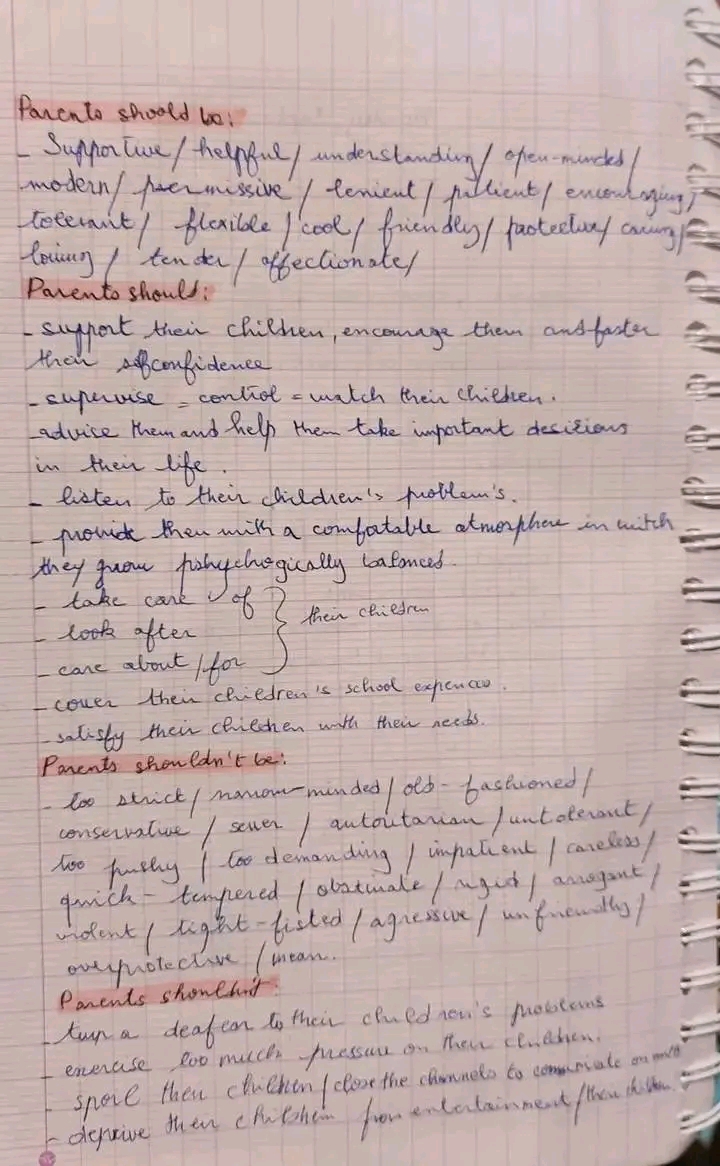 Parents should be:
- Supportive / helpful / understanding / open-minded /
modern / permissive / lenient / patient / encouraging /
tolerant / flexible / cool / friendly / protective / caring /
loving / tender / affectionate /
Parents should:
- support their children, encourage them and faster
their selfconfidence
- supervise = control = watch their children.
- advise them and help them take important desizions
in their life.
- listen to their children's problem's.
- provide them with a comfortable atmosphere in witch
they grow pshychogically balanced.
- take care of
- look after } their children
- care about / for
- cover their children's school expences.
- satisfy their children with their needs.
Parents shouldn't be:
- too strict / narrow-minded / old-fashioned /
conservative / sever / autoutarian / untolerant /
too pushy / too demanding / impatient / careless /
quick-tempered / obstinate / rigid / arrogant /
violent / tight-fisted / agressive / unfriendly /
overprotective / mean.
Parents shouldn't:
- turn a deaf ear to their children's problems
- exercise too much pressure on their children.
- spoil their children / close the channels to communicate
- deprive their children from entertainment / their children.